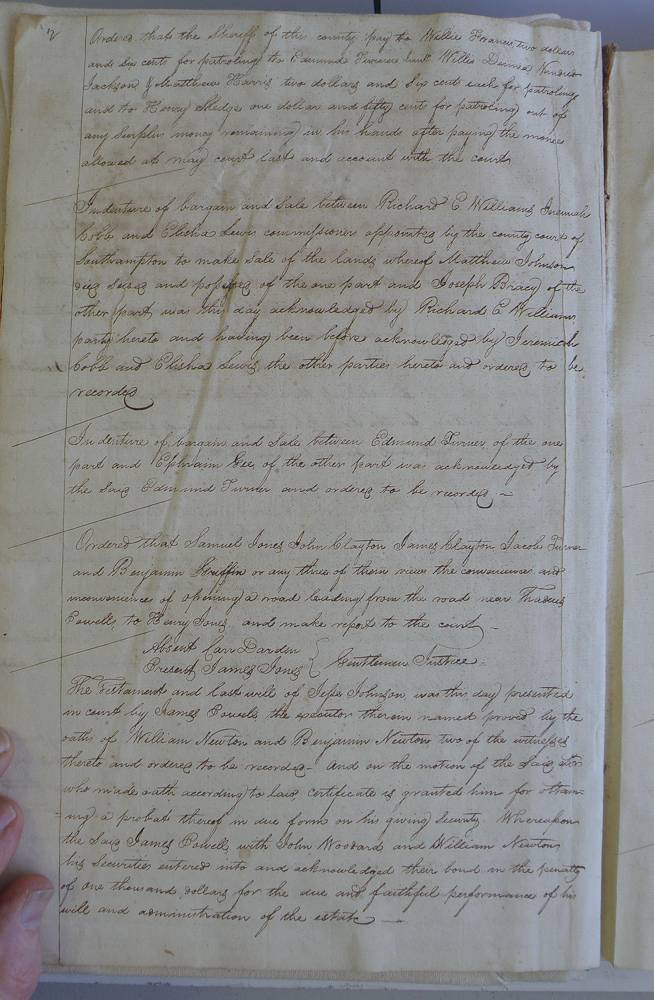 Ordered that the Sheriff of this county pay to Willie Francis two dollars
and six cents for patroling to Edmund Turner Willis
Jackson & Matthew Harris two dollars and six cents each for patroling
and to Henry Sledge one dollar and fifty cents for patroling out of
any surplus money remaining in his hands after paying the monies
allowed at may court last and account with the court
Indenture of bargain and sale between Richard C. Williams Jeremiah
Cobb and Elisha Lewis commissioner appointed by the county court of
Southampton to make sale of the lands whereof Matthew Johnson
died seised and possessed of the one part and Joseph Bracy of the
other part was this day acknowledged by Richard C Williams
party hereto and having been before acknowledged by Jeremiah
Cobb and Elisha Lewis the other parties hereto and ordered to be
recorded
Indenture of bargain and sale between Edmund Turner of the one
part and Ephraim Gee of the other part was acknowledged by
the said Edmund Turner and ordered to be recorded –
Ordered that Samuel Jones John Clayton James Clayton Jacob Turner
and Benjamin Griffin or any three of them view the conveniences and
inconveniences of opening a road leading from the road near
Powells to Henry Jones and make report to the court –
Absent Carr Darden
Present James Jones } Gentlemen Justice
The Testament and last will of Jesse Johnson was this day presented
in court by James Powell the executor therein named proved by the
oaths of William Newton and Benjamin Newton two of the witnesses
thereto and ordered to be recorded – And on the motion of the said exor
who made oath according to law certificate is granted him for obtain-
ing a probat thereof in due form on his giving security Whereupon
the said James Powell with John Woodard and William Newton
his Securities entered into and acknowledged their bond in the penalty
of one thousand dollars for the due and faithful performance of his
will and administration of the estate –